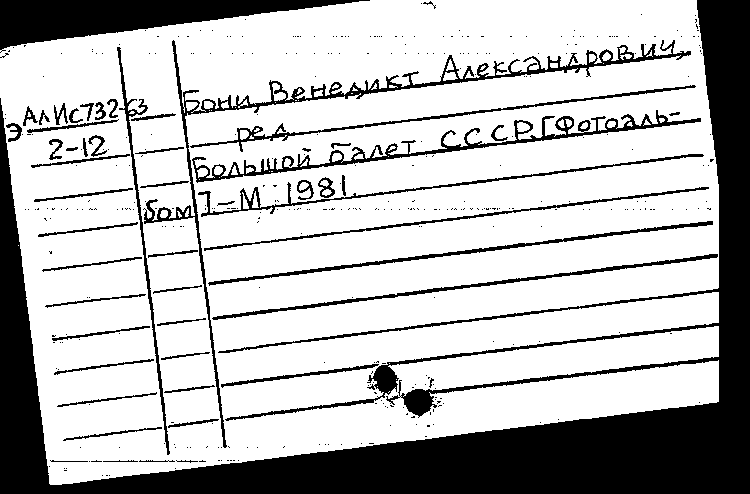 ЭАлИс732-63 Бони, Венедикт Александрович,
2-12 ред.
Большой балет СССР. [Фотоаль-
бом]-М, 1981.